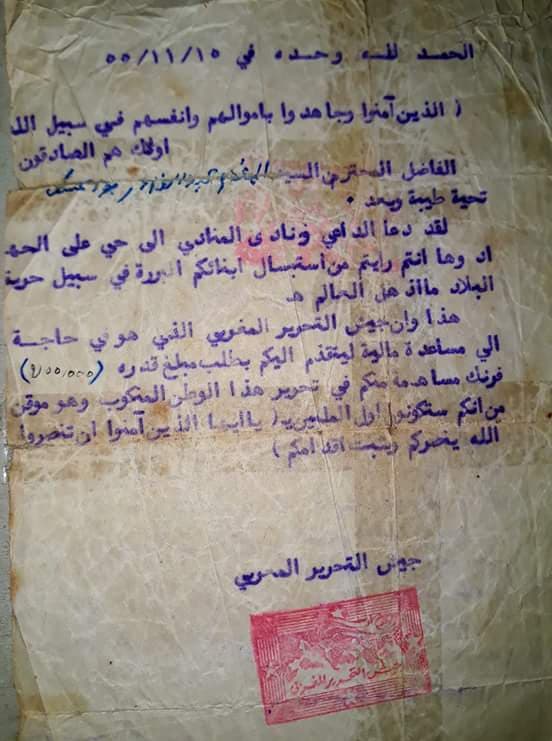 الحمد لله وحده في ٥٥/١١/١٥
( الذين آمنوا وجاهدوا باموالهم وانفسهم في سبيل الله
اولئك هم الصادقون
الفاضل المحترم السيد
تحية طيبة وبعد •
لقد دعا الداعي ونادى المنادي الى حي على الجهـ
اد وها انتم رايتم من استبسال ابنائكم البررة في سبيل حرية
البلاد مااذهل العالم هـ
هذا وان جيش التحرير المغربي الفتي هو في حاجــة
الي مساعدة مالية ليتقدم اليكم بطلب مبلغ قدره
فرنك مساهمة منكم في تحرير هذا الوطن المنكوب وهو موقن
من انكم ستكونوا اول الملبين ( يا ايها الذين آمنوا ان تنصروا
الله ينصركم ويثبت اقدامكم )
جيش التحرير المغربي
جيش التحرير المغربي